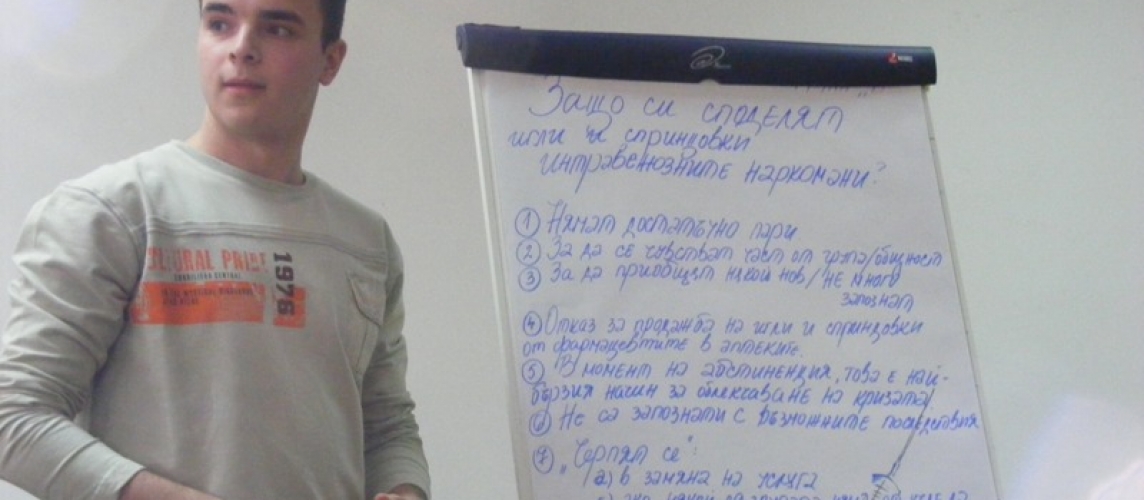 CULTURAL PRIDE
1976
Защо си споделят
игли и спринцовки
интравенозните наркомани?
① Нямат достатъчно пари
② За да се чувстват част от група/общност
③ За да приобщят някой нов/не много
запознат
④ Отказ за продажба на игли и спринцовки
от фармацевтите в аптеките.
⑤ В момент на абстиненция, това е най-
бързия начин за облекчаване на кризата
⑥ Не са запознати с възможните последствия
⑦ „Черпят се":
а) в замяна на услуга